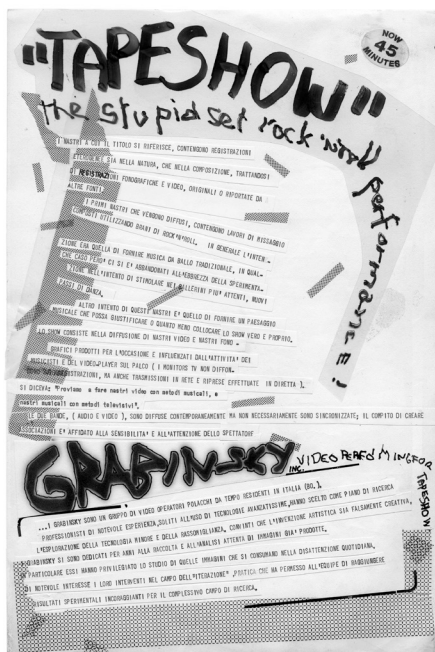 NOW
45
MINUTES
"TAPESHOW"
the stupid set rock'n'roll performance!
I NASTRI A CUI IL TITOLO SI RIFERISCE, CONTENGONO REGISTRAZIONI
SIA NELLA NATURA, CHE NELLA COMPOSIZIONE, TRATTANDOSI
DI REGISTRAZIONI FONOGRAFICHE E VIDEO, ORIGINALI O RIPORTATE DA
ALTRE FONTI.
I PRIMI NASTRI CHE VENGONO DIFFUSI, CONTENGONO LAVORI DI MISSAGGIO
COMPOSTI UTILIZZANDO BRANI DI ROCK'N'ROLL. IN GENERALE L'INTEN-
ZIONE ERA QUELLA DI FORNIRE MUSICA DA BALLO TRADIZIONALE, IN QUAL-
CHE CASO PERO' CI SI E' ABBANDONATI ALL'EBBREZZA DELLA SPERIMENTA-
ZIONE NELL'INTENTO DI STIMOLARE NEI BALLERINI PIU' ATTENTI, NUOVI
PASSI DI DANZA.
ALTRO INTENTO DI QUESTI NASTRI E' QUELLO DI FORNIRE UN PAESAGGIO
MUSICALE CHE POSSA GIUSTIFICARE O QUANTO MENO COLLOCARE LO SHOW VERO E PROPRIO.
LO SHOW CONSISTE NELLA DIFFUSIONE DI NASTRI VIDEO E NASTRI FONO -
GRAFICI PRODOTTI PER L'OCCASIONE E INFLUENZATI DALL'ATTIVITA' DEI
MUSICISTI E DEL VIDEO-PLAYER SUL PALCO ( I MONITORS TV NON DIFFON-
REGISTRAZIONI, MA ANCHE TRASMISSIONI IN RETE E RIPRESE EFFETTUATE IN DIRETTA ).
SI DICEVA: "Proviamo a fare nastri video con metodi musicali, e
nastri musicali con metodi televisivi".
LE DUE BANDE, ( AUDIO E VIDEO ), SONO DIFFUSE CONTEMPORANEAMENTE MA NON NECESSARIAMENTE SONO SINCRONIZZATE; IL COMPITO DI CREARE
ASSOCIAZIONI E' AFFIDATO ALLA SENSIBILITA' E ALL'ATTENZIONE DELLO SPETTATORE
GRABINSKY
INC. VIDEO PERFORMING FOR
TAPESHOW
...I GRABINSKY SONO UN GRUPPO DI VIDEO OPERATORI POLACCHI DA TEMPO RESIDENTI IN ITALIA (BO.).
PROFESSIONISTI DI NOTEVOLE ESPERIENZA, SOLITI ALL'USO DI TECNOLOGIE AVANZATISSIME, HANNO SCELTO COME PIANO DI RICERCA
L'ESPLORAZIONE DELLA TECNOLOGIA MINORE E DELLA RASSOMIGLIANZA. CONVINTI CHE L'INVENZIONE ARTISTICA SIA FALSAMENTE CREATIVA,
GRABINSKY SI SONO DEDICATI PER ANNI ALLA RACCOLTA E ALL'ANALISI ATTENTA DI IMMAGINI GIA' PRODOTTE.
PARTICOLARE ESSI HANNO PRIVILEGIATO LO STUDIO DI QUELLE IMMAGINI CHE SI CONSUMANO NELLA DISATTENZIONE QUOTIDIANA.
DI NOTEVOLE INTERESSE I LORO INTERVENTI NEL CAMPO DELL'"ITERAZIONE", PRATICA CHE HA PERMESSO ALL'EQUIPE DI RAGGIUNGERE
RISULTATI SPERIMENTALI INCORAGGIANTI PER IL COMPLESSIVO CAMPO DI RICERCA.